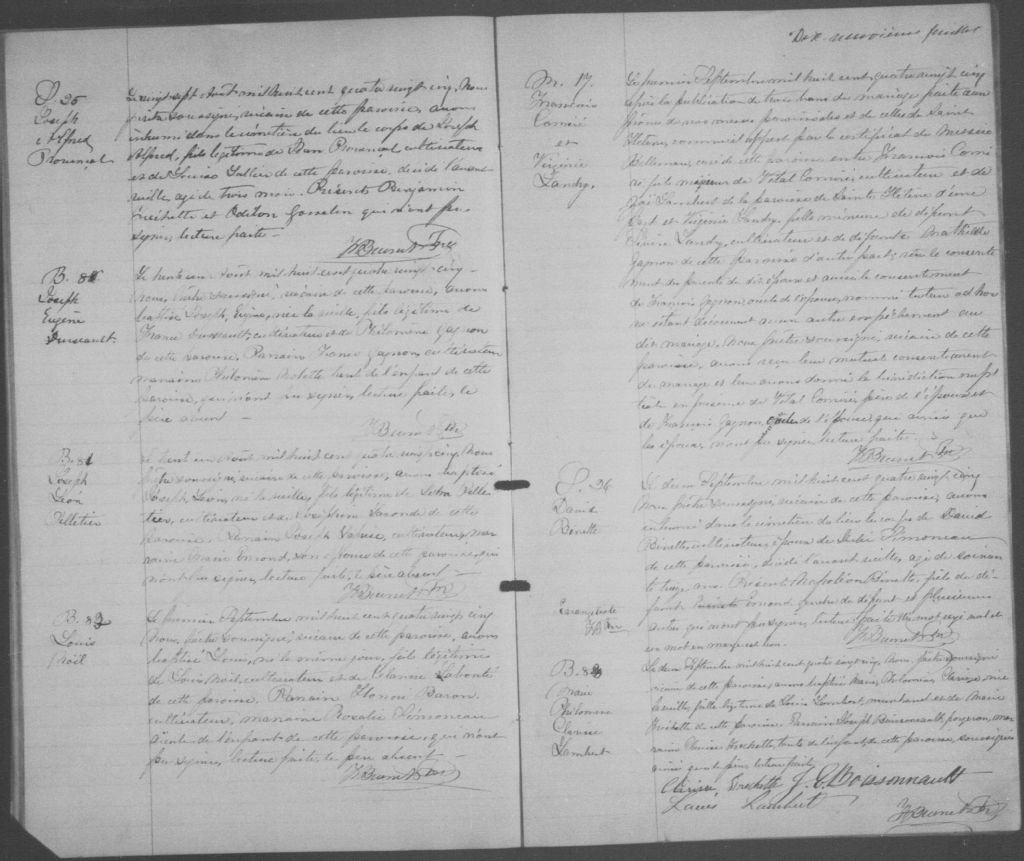 S. 25
Joseph
Alfred
Provençal
Le vingt sept Août mil huit cent quatre vingt cinq, Nous
prêtre soussigné, vicaire de cette paroisse, avons
inhumé dans le cimetière du lieu le corps de Joseph
Alfred, fils légitime de Jean Provençal cultivateur
et de de cette paroisse, décédé l'avant
veille, agé de trois mois. Présents Benjamin
Fréchette et Odilon Gosselin qui n'ont pu
signer, lecture faite.
B.
Joseph
Eugène
Dussault
Le trente un Août mil huit cent quatre vingt cinq
nous, Prêtre soussigné, vicaire de cette paroisse, avons
baptisé Joseph, Eugène, né la veille, fils légitime de
Dussault, cultivateur et de Philomène Gagnon
de cette paroisse. Parrain Gagnon, cultivateur
marraine de l'enfant de cette
paroisse, qui n'ont su signer, lecture faite, le
père absent
B. 81
Joseph
Léon
Pelletier
Le trent un Août mil huit cent quatre vingt cinq, Nous
Prêtre soussigné, vicaire de cette paroisse, avons baptisé
Joseph, Léon, né la veille, fils légitime de Pelle
tier, cultivateur et de de cette
paroisse. Parrain Joseph cultivateur, mar
raine Marie Emond, son épouse de cette paroisse, qui
n'ont su signer, lecture faite, le père absent
B. 82
Louis
Noël
Le premier Septembre mil huit cent quatre vingt cinq
Nous, Prêtre Soussigné, vicaire de cette paroisse, avons
baptisé Louis, né le même jour, fils légitime
de Louis Noël, cultivateur et de Labonté
de cette paroisse. Parrain Honoré Baron
cultivateur, marraine Rosalie Simoneau
aieule de l'enfant de cette paroisse, qui n'ont
pu signer, lecture faite, le père absent
Dix neuvième feuillet
M. 17.
François
Comiré
et
Virginie
Landry.
Le premier Septembre mil huit cent quatre vingt cinq
après la publication de trois bans de mariage faite aux
prônes de nos messes paroissiales et de celles de Sainte
Hélène, comme il appert par le certificat de Messire
curé de cette paroisse entre François Comi
ré fils majeur de Vital Comiré, cultivateur et de
Lambert de la paroisse de Sainte Hélène d'une
part et Virginie Landry, fille mineure de défunt
Landry, cultivateur et de défunte Mathilde
Gagnon de cette paroisse d'autre part; vu le consente
ment des parents de dit époux et aussi le consentement
de François Gagnon, oncle de l'épouse, nommé tuteur ad hoc
ne s'étant découvert aucun autre empêchement au
dit mariage, Nous prêtre, soussigné, vicaire de cette
paroisse, avons reçu leur mutuel consentement
de mariage et leur avons donné la bénédiction nupt
iale en présence de Vital Comiré, père de l'époux et
de François Gagnon, oncle de l'épouse, qui ainsi que
les époux, n'ont pu signer, lecture faite
S. 26
David
Binette
Le deux Septembre mil huit cent quatre vingt cinq
Nous prêtre soussigné, vicaire de cette paroisse, avons
inhumé dans le cimetière du lieu le corps de David
Binette, cultivateur, époux de Simoneau
de cette paroisse, décédé l'avant veille, agé de soixan
te ans. Présents Napoléon Binette, fils du dé
funt Emond, gendre du défunt et plusieurs
autres qui n'ont pu signer, lecture faite. Un mot rayé nul et
un mot en marge est bon.
Evangéliste
B. 83
Marie
Philomène
Clarisse
Lambert
Le deux Septembre mil huit cent quatre vingt cinq, Nous, prêtre soussigné
vicaire de cette paroisse, avons baptisé Marie, Philomène, Clarisse, née
la veille, fille légitime de Louis Lambert, marchand et de Marie
Fréchette de cette paroisse. Parrain Joseph Boissonnault, mar
raine Clarisse Fréchette, tante de l'enfant, de cette paroisse, soussignés
ainsi que le père, lecture faite
Clarisse Frechette J. E. Boissonnault
Louis Lambert